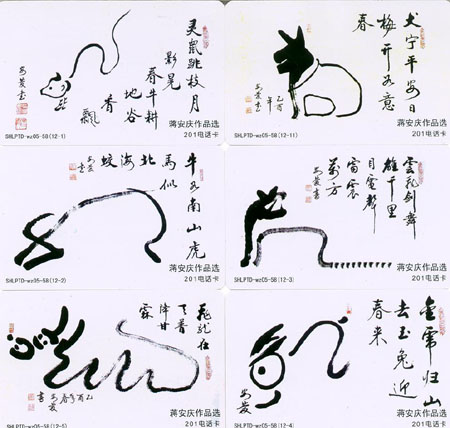 灵鼠跳枝月
影晃
春牛耕
地谷
香
飘
SHLPTD-wz05-58(12-1)
蒋安庆作品选
201电话卡
犬宁平安日
梅开如意
春
SHLPTD-wz05-58(12-11)
蒋安庆作品选
201电话卡
牛如南山虎
馬似
北
海
蛟
SHLPTD-wz05-58(12-2)
蒋安庆作品选
201电话卡
雄千里
目電聲
雷震
萬方
SHLPTD-wz05-58(12-3)
蒋安庆作品选
201电话卡
飛龍在
天普
降甘
霖
SHLPTD-wz05-58(12-5)
蒋安庆作品选
201电话卡
金虎归山
去玉兔迎
春来
SHLPTD-wz05-58(12-4)
蒋安庆作品选
201电话卡